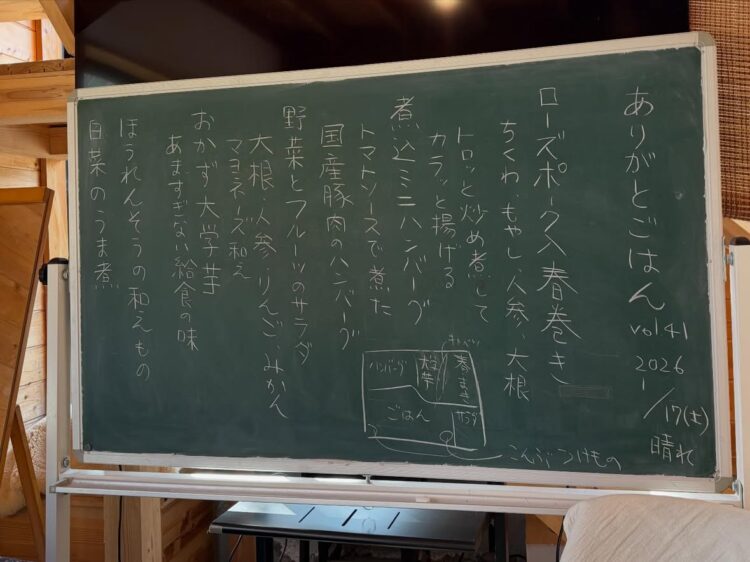 ありがとごはん vol 41
2026
1/17(土)
晴れ
ローズポーク入春巻き
ちくわ、もやし、人参、大根
トロッと炒め煮して
カラッと揚げる
煮込ミニハンバーグ
トマトソースで煮た
国産豚肉のハンバーグ
野菜とフルーツのサラダ
大根・人参・りんご・みかん
マヨネーズ和え
おかず大学芋
あますぎない給食の味
ほうれんそうの和えもの
白菜のうま煮
キャベツ
春まき
大学芋
ハンバーグ
ごはん
サラダ
こんぶ
つけもの